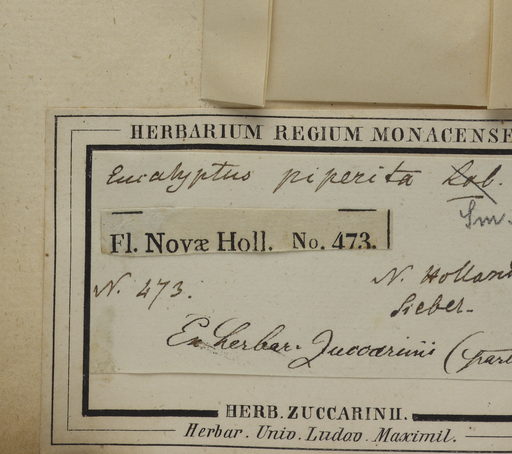 HERBARIUM REGIUM MONACENSE
Eucalyptus piperita Lab.
Sm.
Fl. Novæ Holl. No. 473.
N. 473.
N. Holland
Sieber.
Ex herbar. Zuccarinii (part
HERB. ZUCCARINII.
Herbar. Univ. Ludov. Maximil.